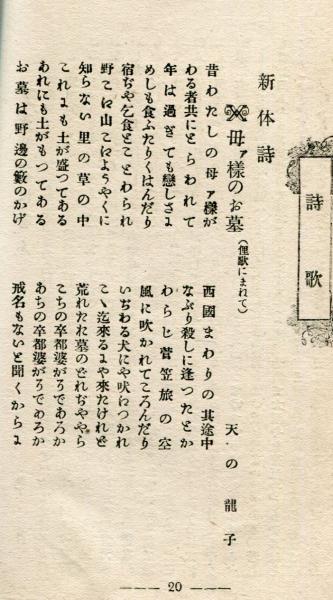 詩歌
新体詩
母ァ様のお墓(俚歌にまねて)
天の龍子
昔わたしの母ァ様が
わる者共にとらわれて
年は過ぎても戀しさよ
めしも食ふたりくはんだり
宿ぢや乞食とことわられ
野こは山こはようやくに
知らない里の草の中
これよも土が盛つてある
あれにも土がもつてある
お墓は野邊の籔のかげ
西國まわりの其途中
なぶり殺しに逢つたとか
わらじ菅笠旅の空
風に吹かれてころんだり
いぢわる犬にや吠につかれ
こゝ迄來るよや來たけれど
荒れたれ墓のどれぢややら
こちの卒都婆がろであろか
あちの卒都婆がろであろか
戒名もないと聞くからよ
20